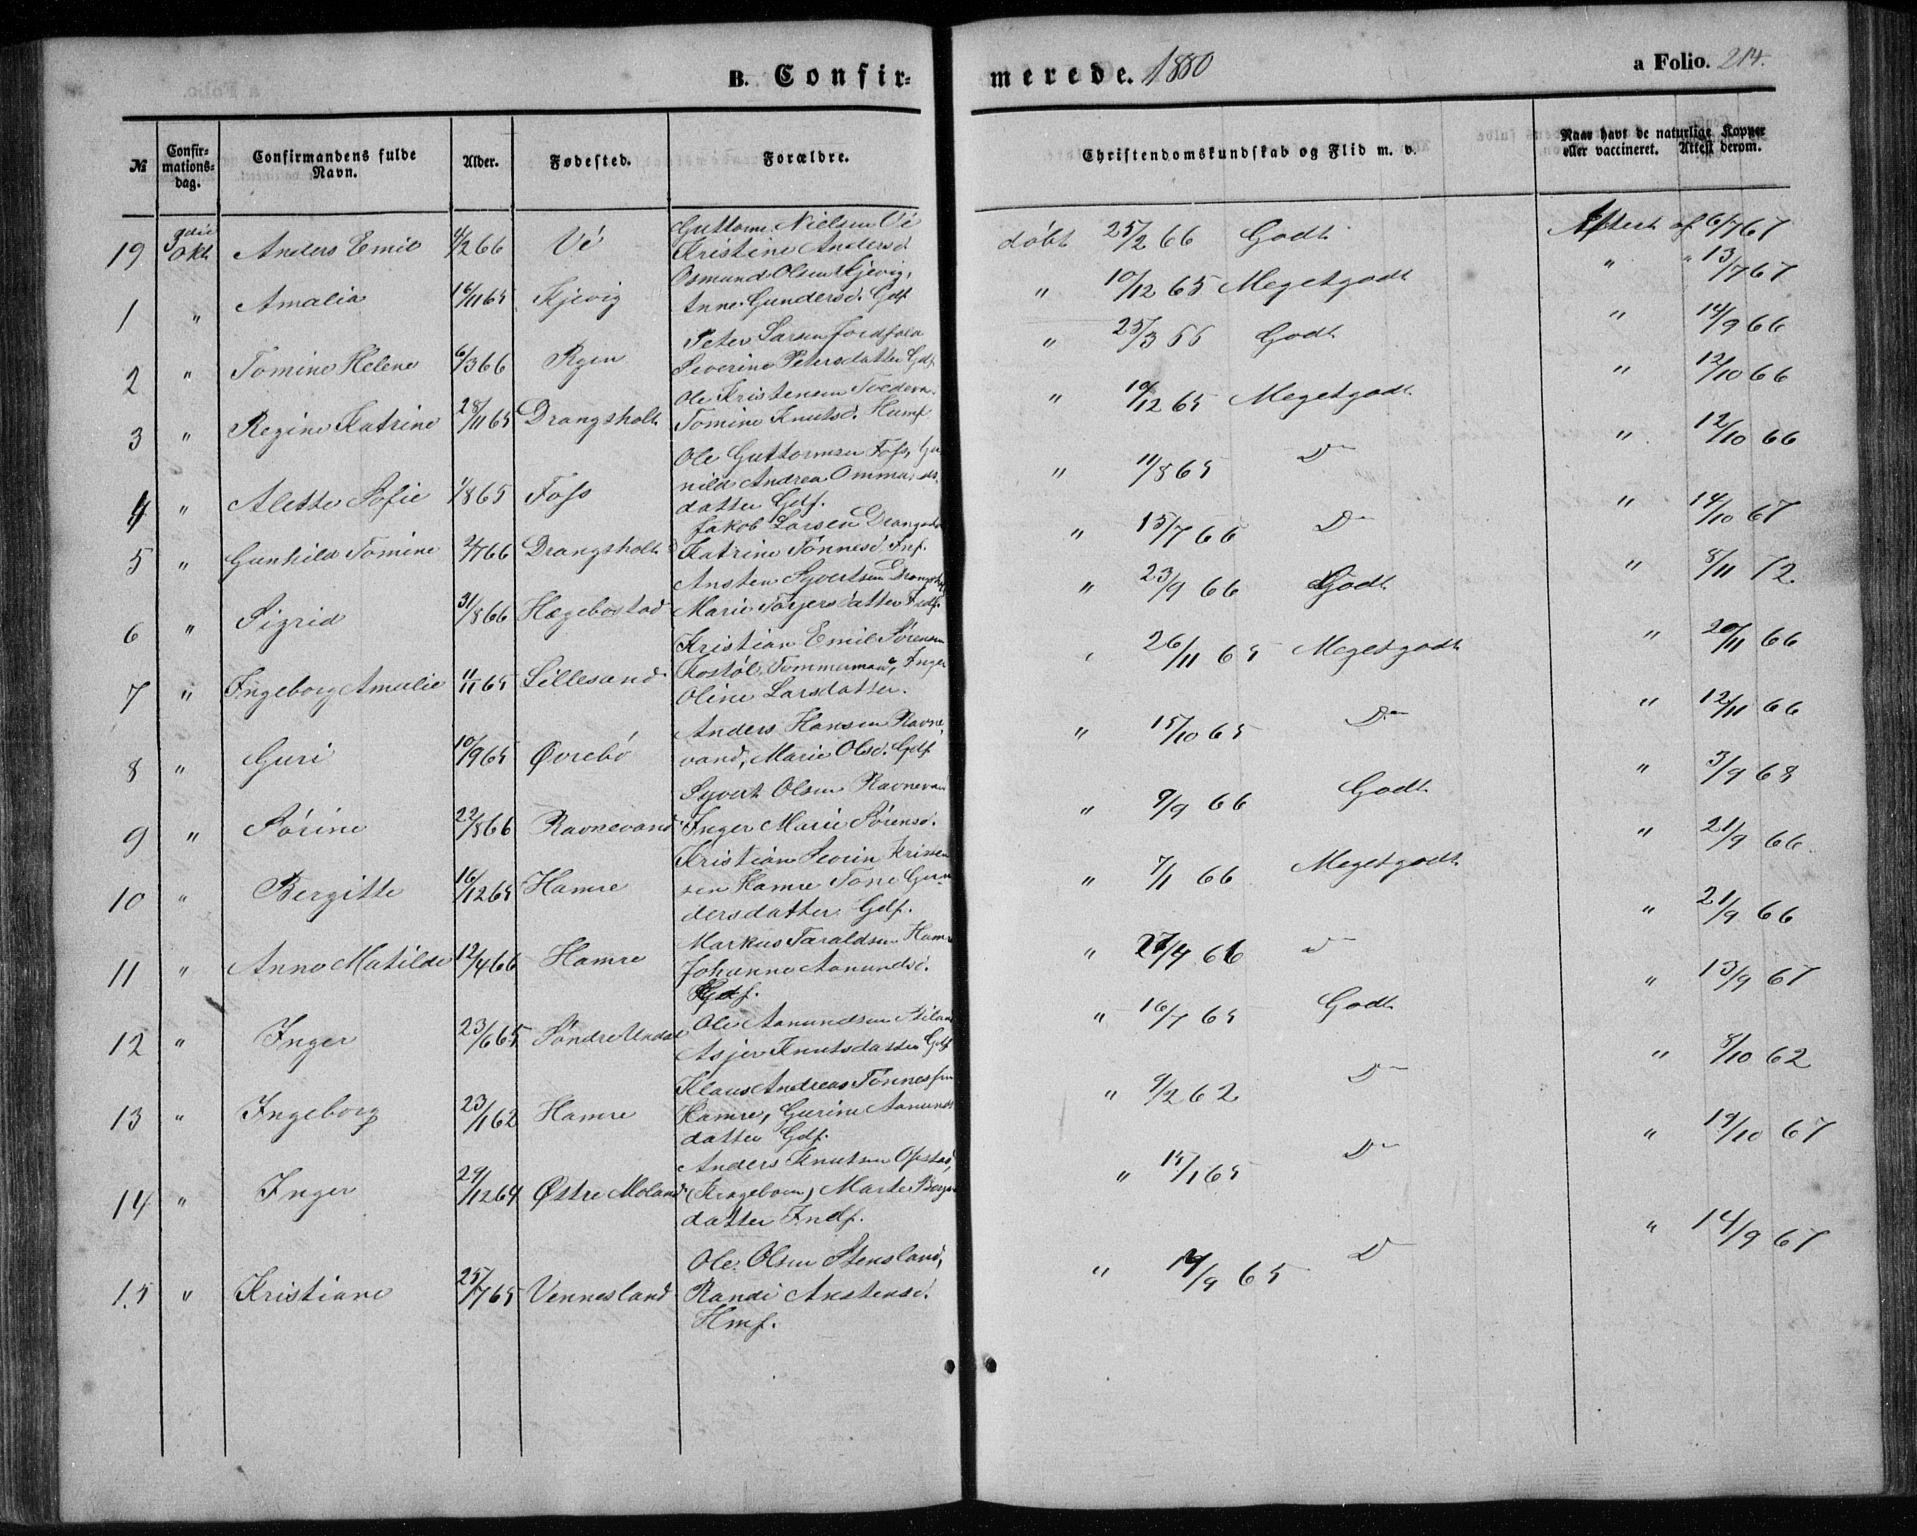 B. Confir-
merede. 1880
a Folio. 214.
№
Confir-
mations-
dag.
Confirmandens fulde
Navn.
Alder.
Fødested.
Forældre.
Christendomskundskab og Flid m. v.
Naar havt de naturlige Kopper
eller vaccineret. Attest derom.
19 Okt. Anders Emil 4/2 66 Vé Guttorm Nielsen Vé
Kristine Andersd. døbt 25/2 66 Godt Attest af 6/7 67
1 " Amalia 16/11 65 Kjevig Osmund Olsen Kjevig,
Anne Gundersd. Gdf. " 10/12 65 Megetgodt " " 13/7 67
2 " Tomine Helene 6/3 66 Rgen Peter Larsen
Severine Petersdatter Gdf. " 25/3 66 Godt " 14/9 66
3 " Regine Katrine 28/11 65 Drangsholt Ole Kristensen
Tomine Knutsd. Humf. " 10/12 65 Megetgodt " 12/10 66
4 " Alette Sofie 1/8 65 Foss Ole Guttormsen Foss, Gu-
nild Andrea Ommunds-
datter Gdf. " 11/8 65 Do " 12/10 66
5 " Gunhild Tomine 2/7 66 Drangsholt Jakob Larsen Drangsholt
Katrine Tønnesd. Inf. " 15/7 66 Do " 14/10 67
6 " Sigrid 31/8 66 Hægebostad Ansten Syvertsen
Marie Torjersdatter Indf. " 23/9 66 Godt " 8/11 72.
7 " Ingeborg Amalie 11/11 65 Lillesand Kristian Emil Sørensen
Kostøl, Tommermand, Inger
Oline Larsdatter. " 26/11 65 Megetgodt " 20/11 66
8 " Guri 10/9 65 Øvrebø Anders Hansen Ravne-
vand, Marie Olsd. Gdf. " 15/10 65 Do " 12/11 66
9 " Sørine 22/8 66 Ravnevand Syvert Olsen Ravnevan
Inger Marie Sørensd. " 9/9 66 Godt " 3/9 68
10 " Bergitte 16/12 65 Hamre Kristian Severin Kristen
sen Hamre Tone Gun-
dersdatter Gdf. " 7/1 66 Megetgodt " 21/9 66
11 " Anne Matilde 12/4 66 Hamre Markus Taraldsen Hamr
Johanne Aanundsd.
Gdf. " 27/4 66 Do " 21/9 66
12 " Inger 23/6 65 Søndre Undal Ole Aanundsen
Asjer Knutsdatter Gdf. " 16/7 65 Godt " 13/9 67
13 " Ingeborg 23/1 62 Hamre Klaus Andreas Tønnessen
Hamre, Gurine Aanunds
datter Gdf. " 9/2 62 Do " 8/10 62
14 " Inger 29/12 64 Østre Moland Anders Knutsen Opstad,
(Krageboen) Marte Berge
datter Indf. " 15/1 65 Do " 19/10 67
15 " Kristiane 25/7 65 Vennesland Ole Olsen Stensland,
Randi Anstensd.
Hmf. " 14/9 65 Do " 14/9 67